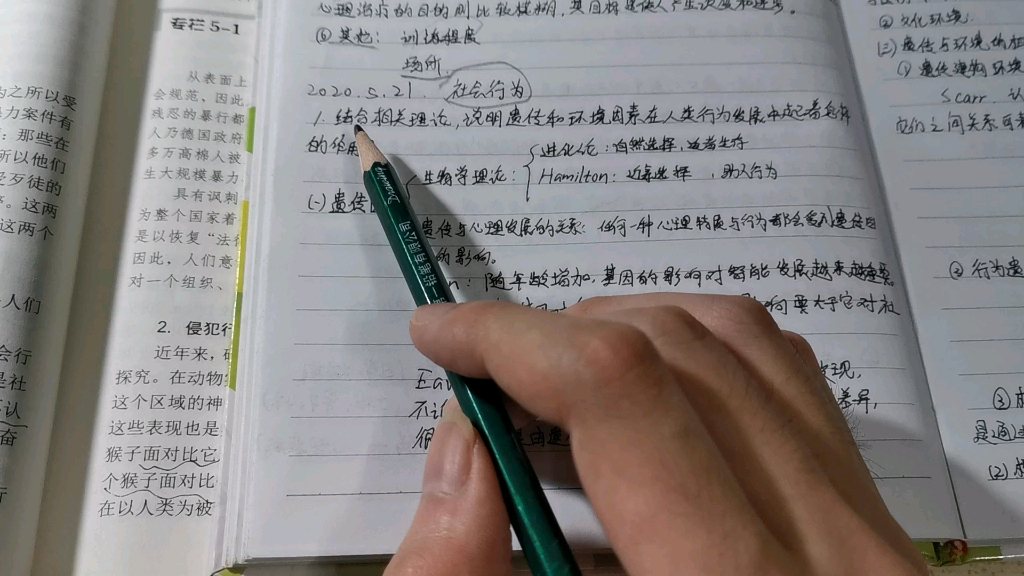 为之所以受
力案件有
那些在
所以他们
歹徒的
这两
人们
会行
是社
认
奋
行
专栏 5-1
从表面上
会规范，因此
残忍的暴行都
人乃德国政府
多万高棉人被
生大规模暴力
具有讽刺
为整个国家着
是以恢复“法
因此，人们意
对一个组织、
2. 侵犯行
近年来，
探究。在动物
这个区域的神
这些表现也是
猴子面对比它
个猴子面对比
在以人类为被
心理治疗的目的则比较模糊，其目标是使人产生
③ 其他： 训练程度
场所
2020.5.21 社会行为
1. 结合相关理论，说明遗传和环境因素在人类行为发展中起着怎样
的作
(一) 遗传
生物学理论：
进化论：自然选择，适者生存
Hamilton：近亲选择，助人行为
遗传与心理发展的关系：任何一种心理特质与行为都会受到遗传因
的影响。
随年龄增加，基因的影响对智能发展越来越
响要大于它对
发现，
差异，
② 文化环境
(三) 遗传与环境的
① 遗传 环境
Scarr
它们之间关系可
② 行为遗
③
是通过
(2)